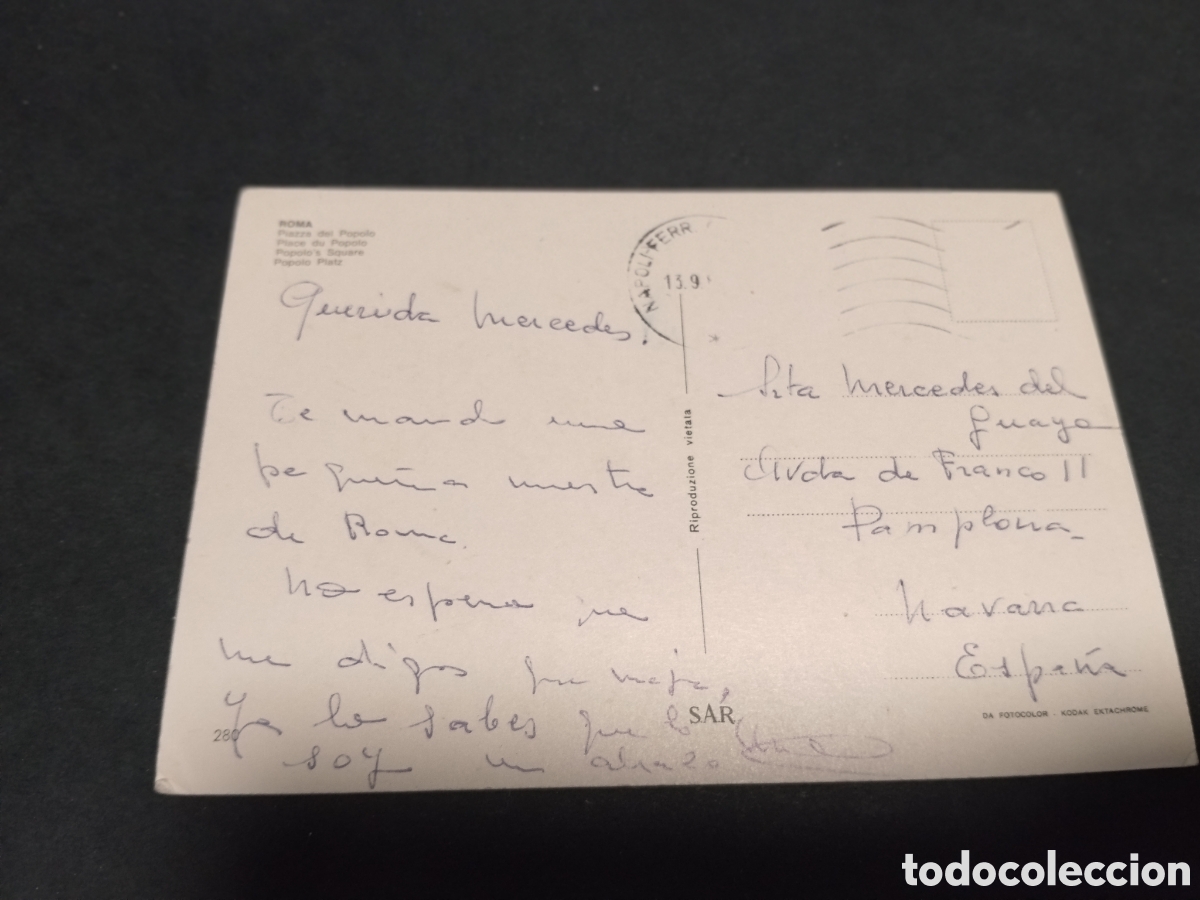 ROMA
Piazza del Popolo
Place du Popolo
Popolo's Square
Popolo Platz
NAPOLI-FERR
13.9
Querida Mercedes.
Te mando una
pequeña muestra
de Roma.
No espero que
me digas que maja,
Ya lo sabes que lo
soy un abrazo
280
Riproduzione vietata
SAR
Srta Mercedes del
Guayo
Avda de Franco 11
Pamplona
Navarra
España
DA FOTOCOLOR - KODAK EKTACHROME
todocoleccion